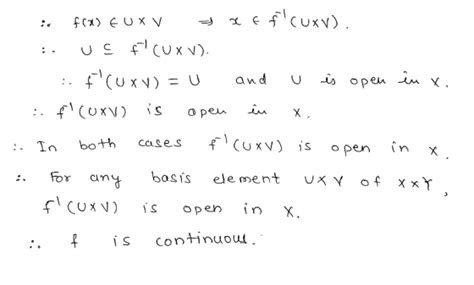 ∴ f(x) ∈ U × V ⇒ x ∈ f⁻¹(U×V).
∴ U ⊆ f⁻¹(U×V).
∴ f⁻¹(U×V) = U and U is open in X.
∴ f⁻¹(U×V) is open in X.
∴ In both cases f⁻¹(U×V) is open in X.
∴ For any basis element U×V of X×Y,
f⁻¹(U×V) is open in X.
∴ f is continuous.